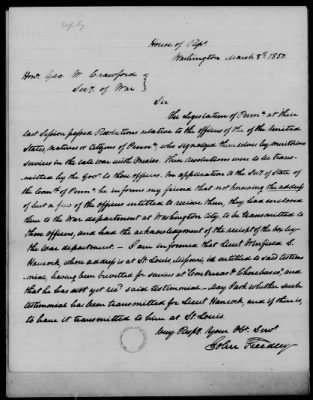 reply
House of Reps
Washington March 8th 1850.
Hon. Geo. W. Crawford
Secy. of War
Sir
The Legislature of Penna at their
last session passed Resolutions relative to the officers of the of the United
States, natives or citizens of Penna, who signalized themselves by meritorious
services in the late war with Mexico. These resolutions were to be trans-
mitted by the Govr to these officers. On application to the Secy of State
of the Comth of Penna he informs my friend that not knowing the address
of but a few of the officers entitled to receive them, they had enclosed
them to the War department at Washington City to be transmitted to
those officers, and had the acknowledgment of the receipt of the box by
the War department. — I am informed that Lieut Winfield S.
Hancock, whose address is at St Louis, Missouri, is entitled to said testimo-
nial, having been brevetted for services at "Contreras & Churubusco," and
that he has not yet recd said testimonial — May I ask whether such
testimonial has been transmitted for Lieut Hancock, and if there is,
to have it transmitted to him at St Louis
Very Respy. Your Obt. Servt
John Freedley